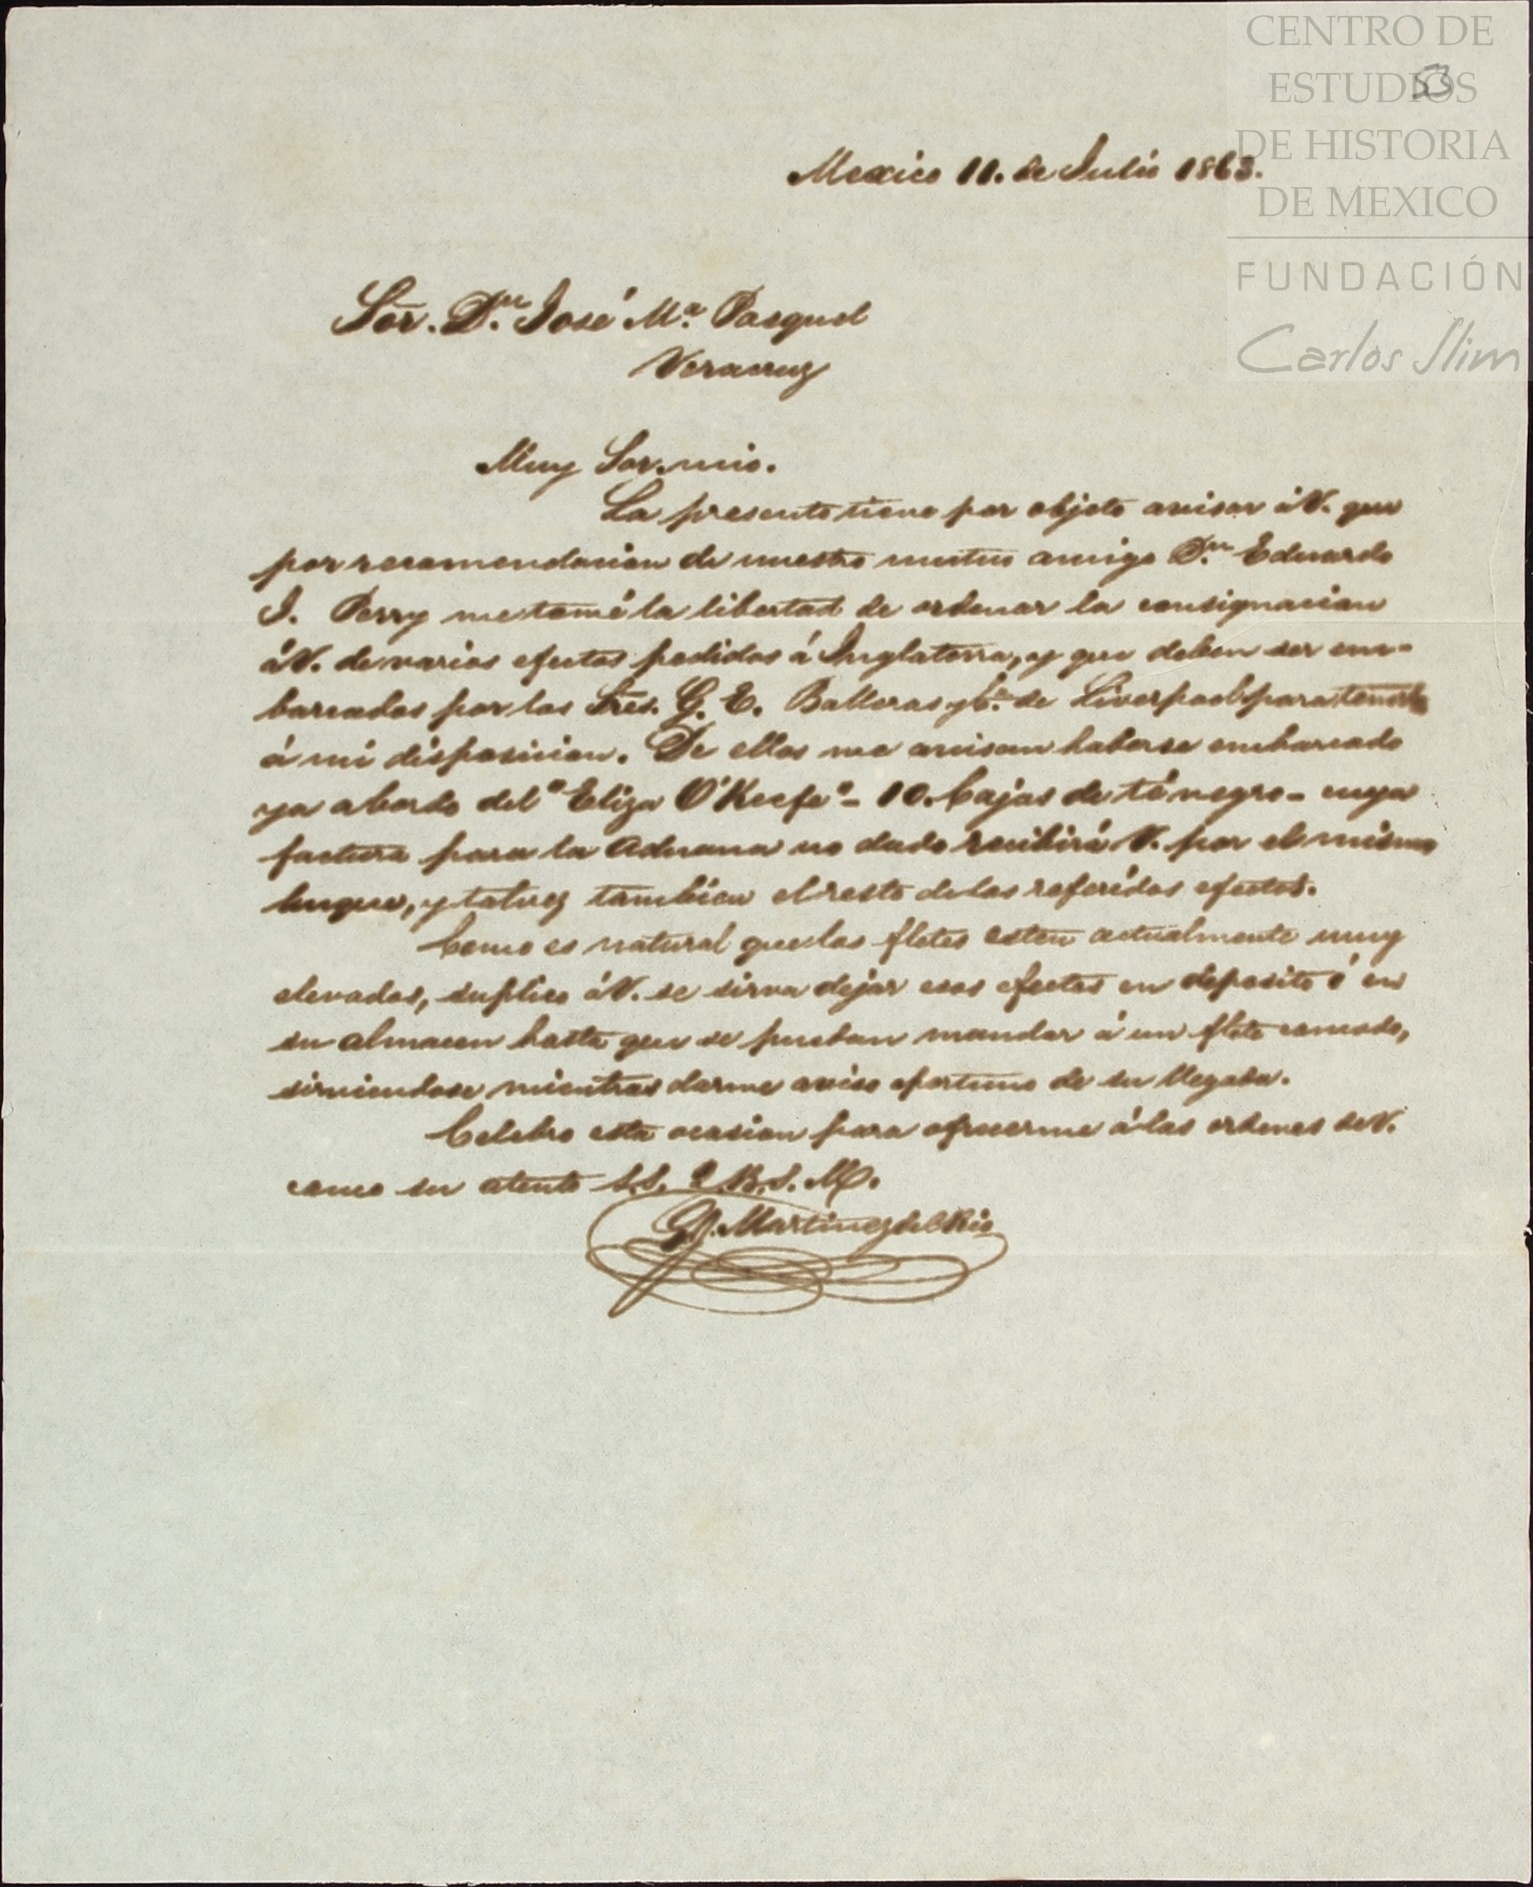 CENTRO DE
ESTUDIOS
DE HISTORIA
DE MEXICO
FUNDACIÓN
Carlos Slim
53
Mexico 11. de Julio 1863.
Sõr. Dn. José Ma. Pasquel
Veracruz
Muy Sor. mio.
La presente tiene por objeto avisar á V. que
por recomendacion de nuestro mutuo amigo Dn. Eduardo
J. Perry me tomé la libertad de ordenar la consignacion
á V. de varios efectos pedidos á Inglaterra, y que deben ser em-
barcados por los Sres. G. E. Balleras y Ca. de Liverpool para
á mi disposicion. De ellos me avisan haberse embarcado
ya abordo del "Eliza O'Keefe" - 10. Cajas de té negro - cuya
factura para la Aduana no dudo recibirá V. por el mismo
buque, y talvez tambien el resto de los referidos efectos.
Como es natural que los fletes esten actualmente muy
elevados, suplico á V. se sirva dejar esos efectos en deposito ó en
su almacen hasta que se puedan mandar á un flete comodo,
sirviendose mientras darme aviso oportuno de su llegada.
Celebro esta ocasion para ofrecerme á las ordenes de V.
como su atento S.S. Q.B.S.M.
Martinez del Rio